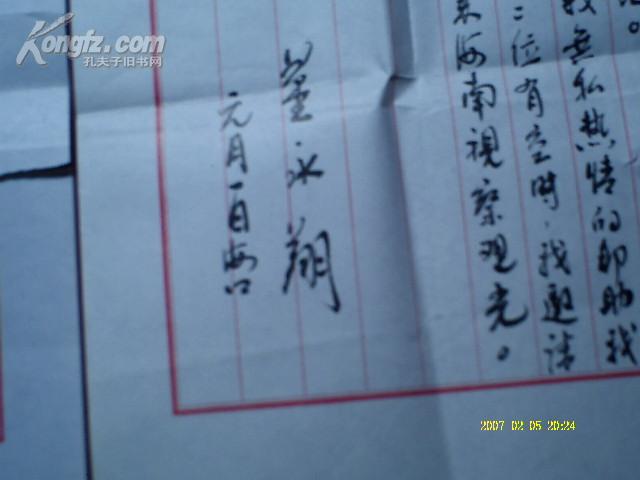 Kongfz.com
孔夫子旧书网
我無私热情的帮助我
二位有空時，我邀请
来海南視察观光。
崔永翔
元月一日海口
2007 02 05 20:24